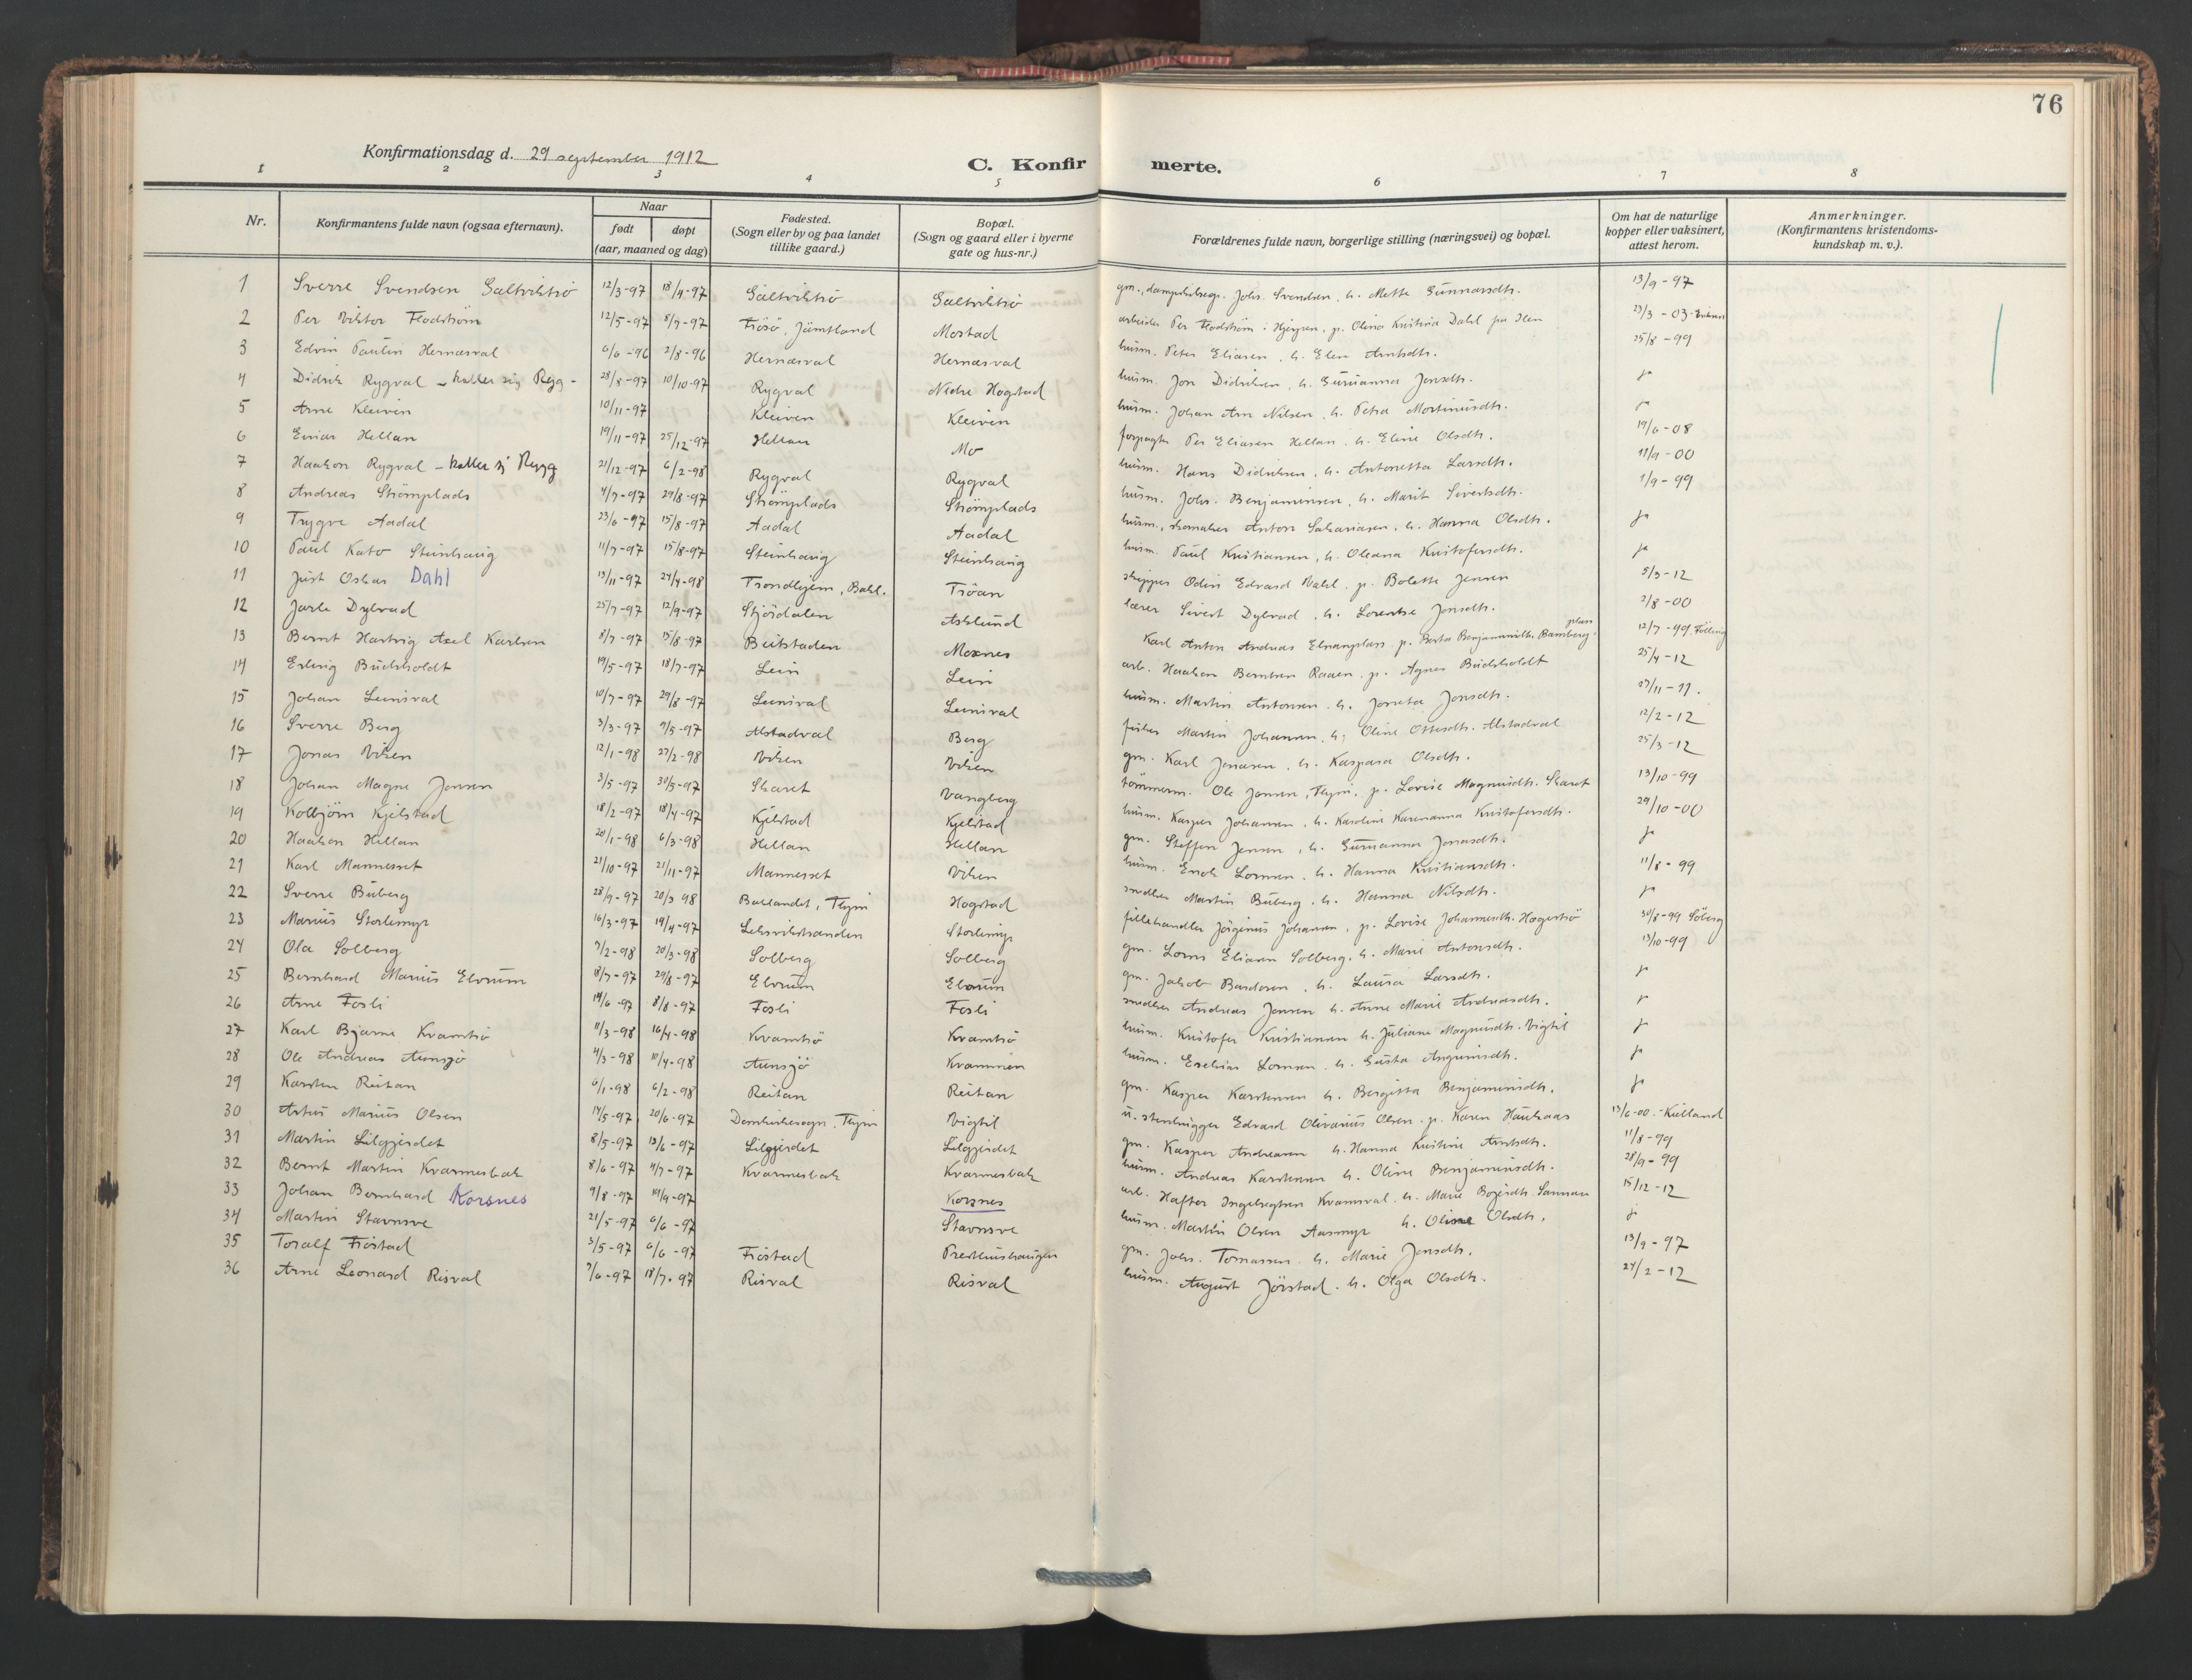 76
Konfirmationsdag d. 29 september 1912
C. Konfirmerte.
1 2 3 4 5 6 7 8
Nr.
Konfirmantens fulde navn (ogsaa efternavn).
Naar
født døpt
(aar, maaned og dag)
Fødested.
(Sogn eller by og paa landet
tillike gaard.)
Bopæl.
(Sogn og gaard eller i byerne
gate og hus-nr.)
Forældrenes fulde navn, borgerlige stilling (næringsvei) og bopæl.
Om hat de naturlige
kopper eller vaksinert,
attest herom.
Anmerkninger.
(Konfirmantens kristendoms-
kundskap m. v.).
1 Sverre Svendsen Saltviktrø 12/3-97 18/4-97 Saltviktrø Saltviktrø gm., dampskibsexp. Johs. Svendsen, h. Mette Gunnarsdtr. 13/9-97
2 Per Viktor Flodström 12/5-97 Frösö, Jämtland Mostad arbeider Per Flodström i Hjerpen, p. Olina Kristina Dahl 23/3-03
3 Edvin Paulin Hernæsval 6/6-96 2/8-96 Hernæsval Hernæsval husm. Peter Eliasen, h. Elen Arntsdtr. 25/8-99
4 Didrik Rygval - kaller sig Rygg - 28/8-97 10/10-97 Rygval Nedre Hogstad husm. Jon Didriksen, h. Gurianna Jonsdtr. ja
5 Arne Kleiven 10/11-97 Kleiven Kleiven husm. Johan Arn Nilsen, h. Petra Mortinusdtr. ja
6 Einar Hellan 19/11-97 25/12-97 Hellan Mo forpagter Per Eliasen Hellan, h. Eline Olsdtr. 19/6-08
7 Haakon Rygval - kaller sig Rygg 21/12-97 6/2-98 Rygval Rygval husm. Hans Didriksen, h. Antonetta Larsdtr. 11/9-00
8 Andreas Strömplads 4/7-97 29/8-97 Strömplads Strömplads husm. Johs. Benjaminsen, h. Marit Sivertsdtr. 1/9-99
9 Trygve Aadal 23/6-97 15/8-97 Aadal Aadal husm., skomaker Anton Sakariasen, h. Hanna Olsdtr. ja
10 Paul Kato Steinhaug 11/7-97 15/8-97 Steinhaug Steinhaug husm. Paul Kristiansen, h. Oleana Kristofersdtr. ja
11 Just Oskar Dahl 13/11-97 24/4-98 Trondhjem, Bakl. Tröan skipper Odin Edvard Dahl, p. Bolette Jensen 5/3-12
12 Jarle Dybvad 25/7-97 12/9-97 Stjördalen Asklund lærer Sivert Dybvad, h. Lorentse Jonsdtr. 2/8-00
13 Bernt Hartvig Axel Karlsen 8/7-97 15/8-97 Beitstaden Moxnes Karl Anton Andreas Elnanplass p. Berta Benjaminsdtr. Bambergplass 12/7-99 Følling
14 Erling Buchholdt 19/5-97 18/7-97 Lein Lein arb. Haakon Berntsen Raaen, p. Agnes Buchholdt 25/4-12
15 Johan Leinsval 10/7-97 29/8-97 Leinsval Leinsval husm. Martin Antonsen, h. Joneta Jonsdtr. 27/11-11.
16 Sverre Berg 3/3-97 9/5-97 Alstadval Berg fisker Martin Johansen, h. Oline Ottesdtr. Alstadval 12/2-12
17 Jonas Viken 12/1-98 27/2-98 Viken Viken gm. Karl Jonasen, h. Kaspara Olsdtr. 25/3-12
18 Johan Magne Jensen 3/5-97 30/5-97 Skaret Vangberg tömmerm. Ole Jensen, Thjm., p. Lovise Magnusdtr. Skaret 13/10-99
19 Kolbjörn Kjelstad 18/2-97 18/4-97 Kjelstad Kjelstad husm. Kasper Johansen, h. Karoline Karenanna Kristofersdtr. 29/10-00
20 Haakon Hellan 20/1-98 6/3-98 Hellan Hellan gm. Steffen Jensen, h. Gurianna Jonasdtr. ja
21 Karl Mannesset 21/10-97 21/11-97 Mannesset Viken husm. Enok Lornsen, h. Hanna Kristiansdtr. 11/8-99
22 Sverre Buberg 28/9-97 20/3 98 Baklandet, Thjm Hogstad snedker Martin Buberg, h. Hanna Nilsdtr. ja
23 Marius Storlimyr 16/3-97 19/4-97 Leksvikstranden Storlimyr fillehandler Jörginus Johansen, p. Lovise Johannesdtr. Hogertrö 30/8-99 Söberg
24 Ola Solberg 7/2-98 20/3-98 Solberg Solberg gm. Lorns Eliasen Solberg, h. Marie Antonsdtr. 13/10-99
25 Bernhard Marius Elvrum 8/7-97 29/8-97 Elvrum Elvrum gm. Jakob Bardosen, h. Laura Larsdtr. ja
26 Arne Fosli 14/6-97 8/8-97 Fosli Fosli snedker Andreas Jensen h. Anne Marie Andreasdtr. ja
27 Karl Bjarne Kvamtrö 11/3-98 16/4-98 Kvamtrö Kvamtrö husm. Kristofer Kristiansen h. Juliane Magnusdtr. Vigtil ja
28 Ole Andreas Aunsjö 4/3-98 10/4-98 Aunsjö Kvammen husm. Esekias Lornsen, h. Gusta Angunisdtr. ja
29 Karsten Reitan 6/1-98 6/2-98 Reitan Reitan gm. Kasper Karstensen h. Bergitta Benjaminsdtr. ja
30 Artur Marius Olsen 14/5-97 20/6-97 Domkirkesogn, Thjm Vigtil u. stenhugger Edvard Olivanius Olsen, p. Karen Haukaas 13/6-00 - Kielland
31 Martin Lilgjerdet 8/5-97 13/6-97 Lilgjerdet Lilgjerdet gm. Kasper Andreasen h. Hanna Kristine Arntsdtr. 11/8-99
32 Bernt Martin Kvarmesbak 8/6-97 4/7-97 Kvarmesbak Kvarmesbak husm. Andreas Karstensen h. Oline Benjaminsdtr. 28/9-99
33 Johan Bernhard Korsnes 9/8-97 19/9-97 Korsnes arb. Haftor Ingebregtsen Kvamsval h. Marie 15/12-12
34 Martin Stavnsve 21/5-97 6/6-97 Stavnsve husm. Martin Olsen Aasmyr h. Oline Olsdtr. ja
35 Toralf Fröstad 3/5-97 6/6-97 Fröstad Presthushaugen gm. Johs. Tomassen h. Marie Jensdtr. 13/9-97
36 Arne Leonard Risval 7/6-97 18/7-97 Risval Risval husm. August Jörstad, h. Olga Olsdtr. 24/2-12